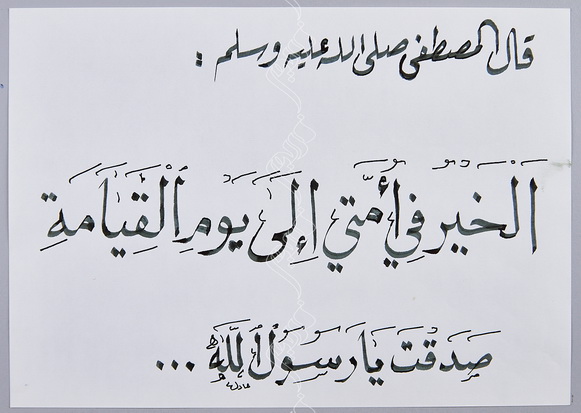 قال المصطفى صلى الله عليه وسلم :
اَلْخَيْرُ فِي أُمَّتِي إِلَى يَوْمِ الْقِيَامَةِ
صَدَقْتَ يَا رَسُولَ اللَّهِ ...